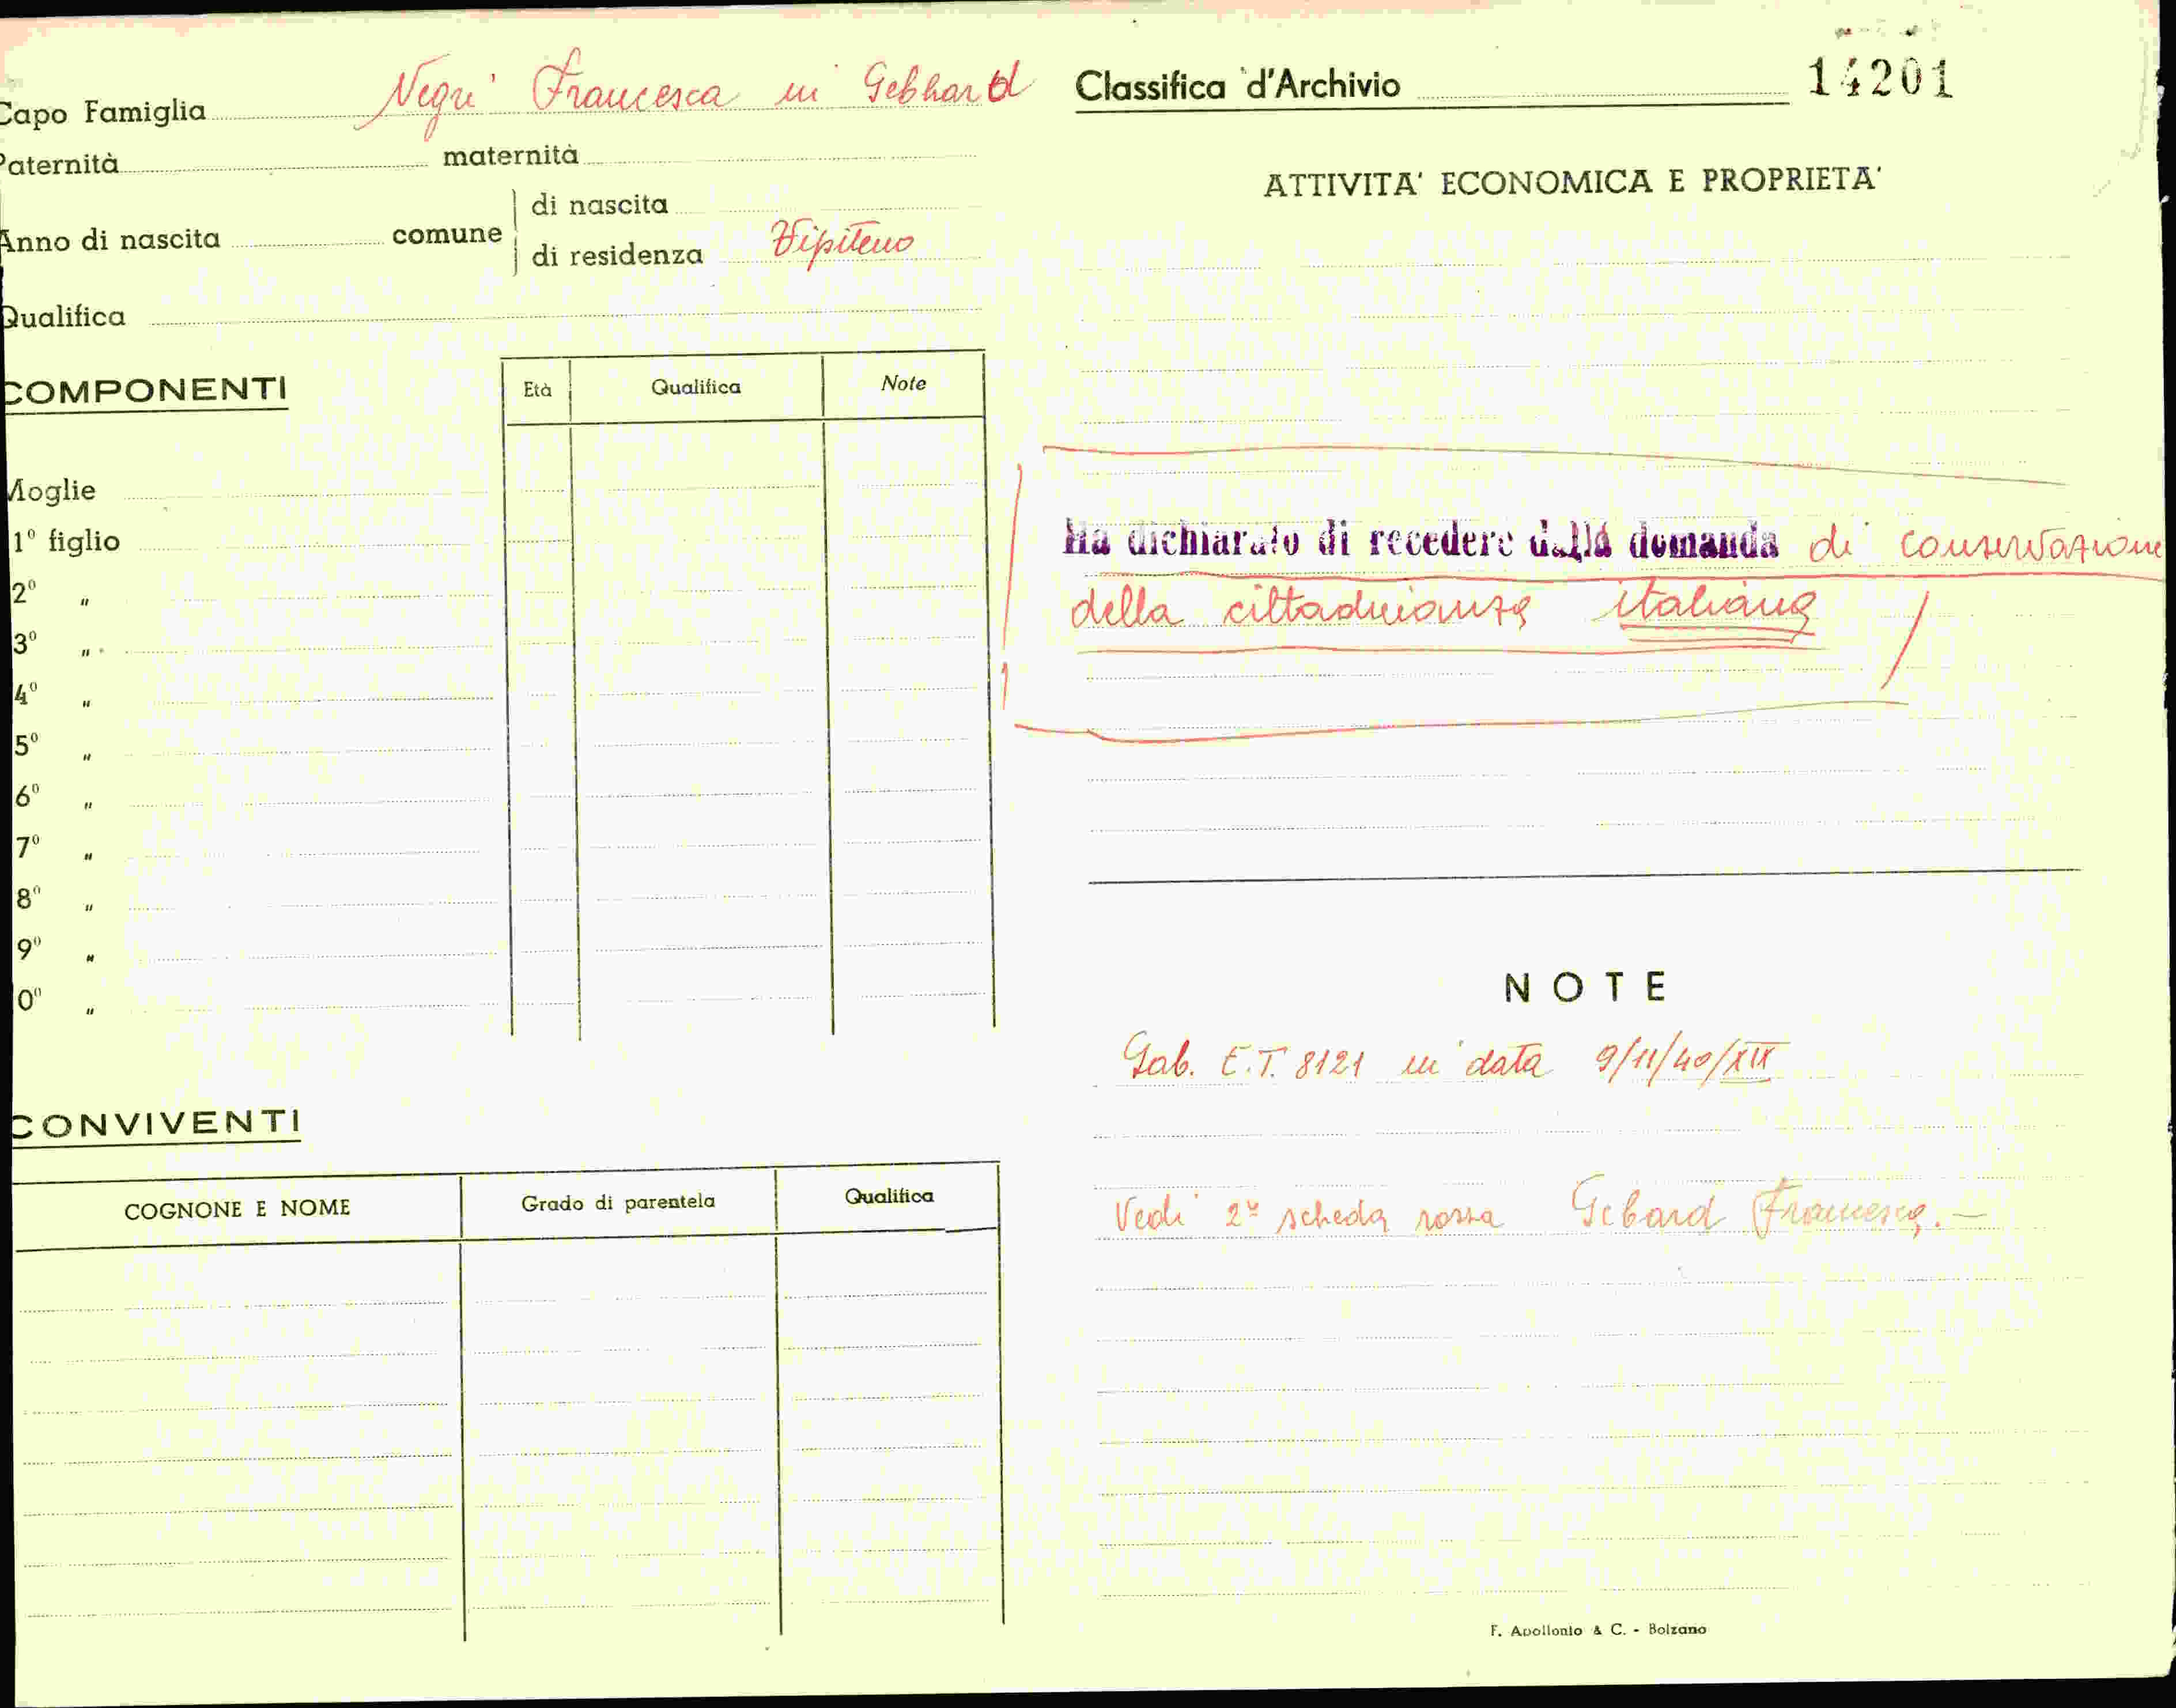 Capo Famiglia Negri Francesca in Gebhard
Paternità maternità
Anno di nascita comune di nascita
di residenza Vipiteno
Qualifica
COMPONENTI
Età Qualifica Note
Moglie
1º figlio
2º "
3º "
4º "
5º "
6º "
7º "
8º "
9º "
0º "
CONVIVENTI
COGNONE E NOME Grado di parentela Qualifica
Classifica d'Archivio 14201
ATTIVITA' ECONOMICA E PROPRIETA'
Ha dichiarato di recedere dalla domanda di conservazione
della cittadinanza italiana
NOTE
Gab. E.T. 8121 in data 9/11/40/XIX
Vedi 2ª scheda rossa Gebard Francesca. —
F. Apollonio & C. - Bolzano